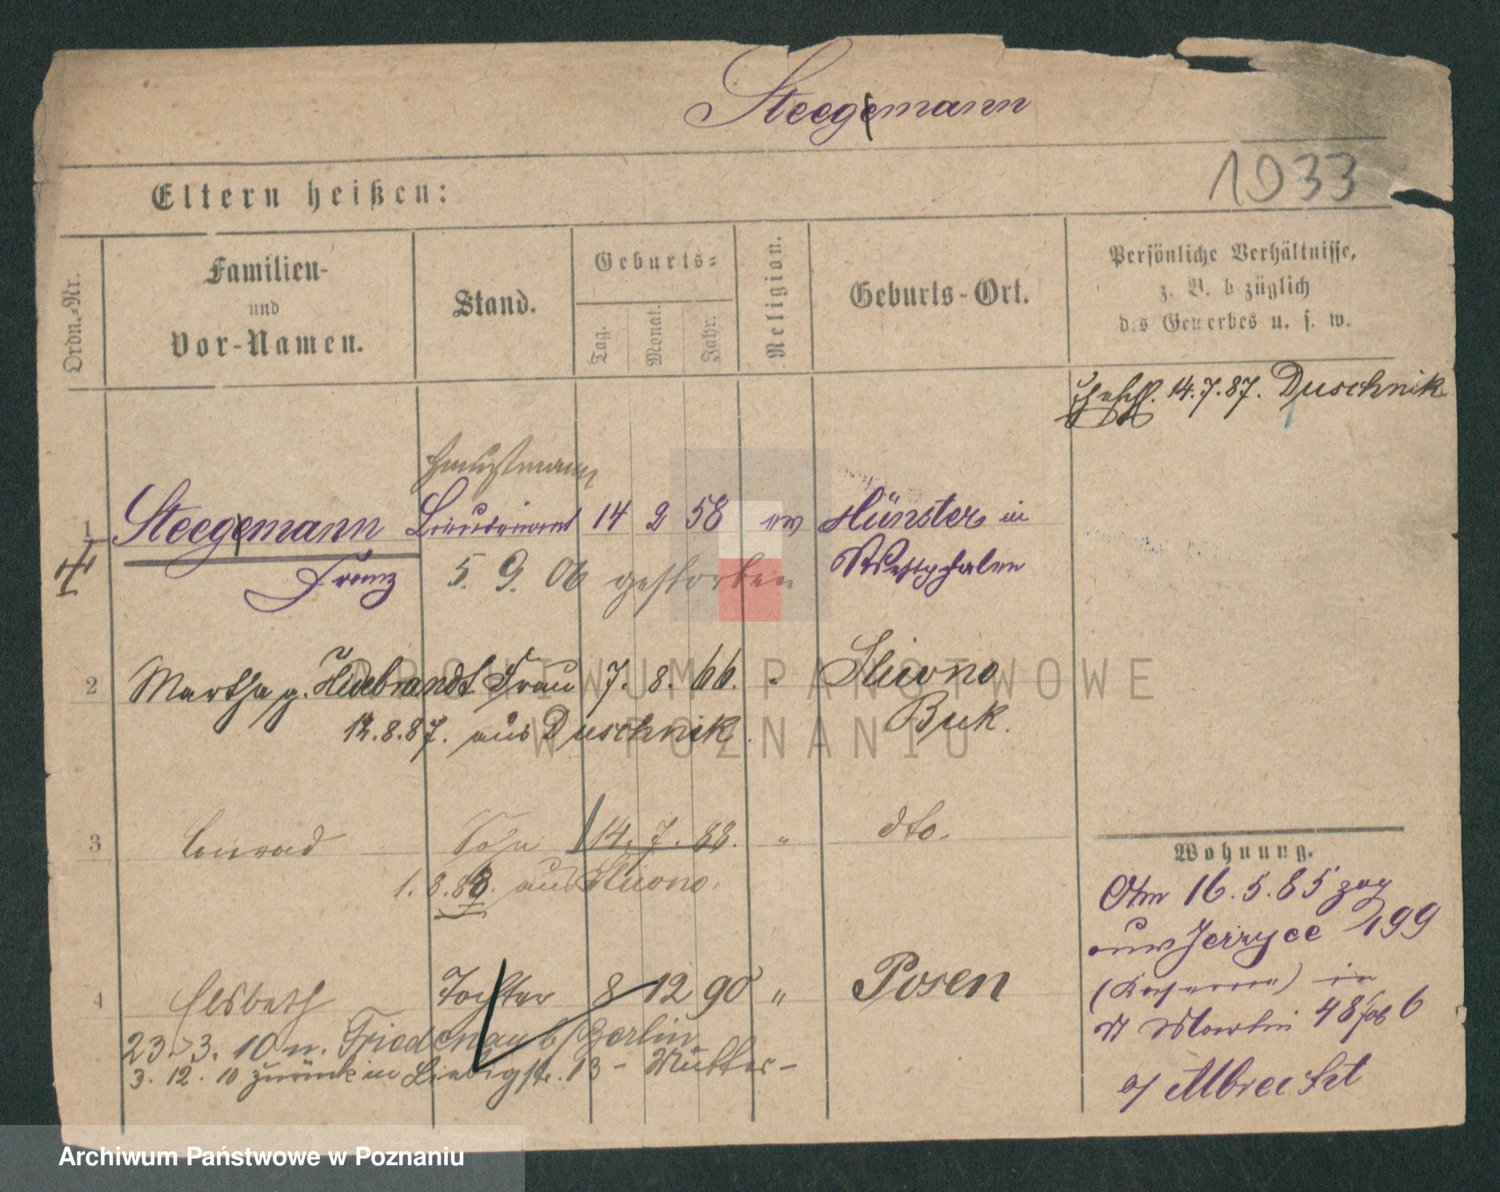 Steegemann
1933
Eltern heißen:
Ordn.-Nr.
Familien-
und
Vor-Namen.
Stand.
Geburts-
Tag.
Monat.
Jahr.
Religion.
Geburts-Ort.
Persönliche Verhältnisse,
z. B. bezüglich
des Gewerbes u. s. w.
14.7.87. Duschnik
Hauptmann
1 Steegemann Lieutenant 14 2 58 ev Münster in
Franz 5. 9. 06 gestorben Westphalen
2 Martha g. Hildebrandt Frau 7. 8. 66. " Sliwno
12.8.87. aus Duschnik. Buk.
3 Conrad Sohn 14. 7. 88. " dto.
1. 8. 88. aus Sliwno.
4 Elsbeth Tochter 8 12 90 " Posen
23.3.10 n. Friedenau b/Berlin
3. 12. 10 zurück in Liebigstr. 13 - Mutter -
Wohnung.
16. 5. 85 zog
aus Jerzyce 199
(Kaserne) in
St Martin 48 6
Albrecht
ARCHIWUM PAŃSTWOWE
W POZNANIU
Archiwum Państwowe w Poznaniu